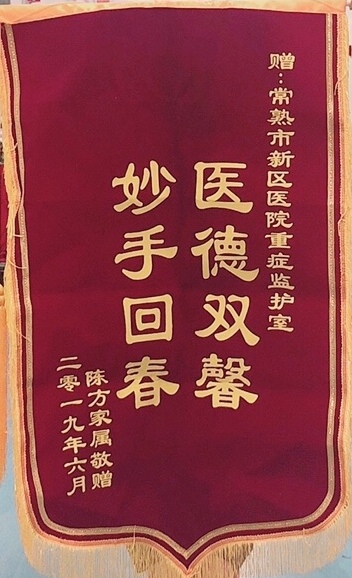 赠:常熟市新区医院重症监护室
医德双馨
妙手回春
陈方家属敬赠
二零一九年六月